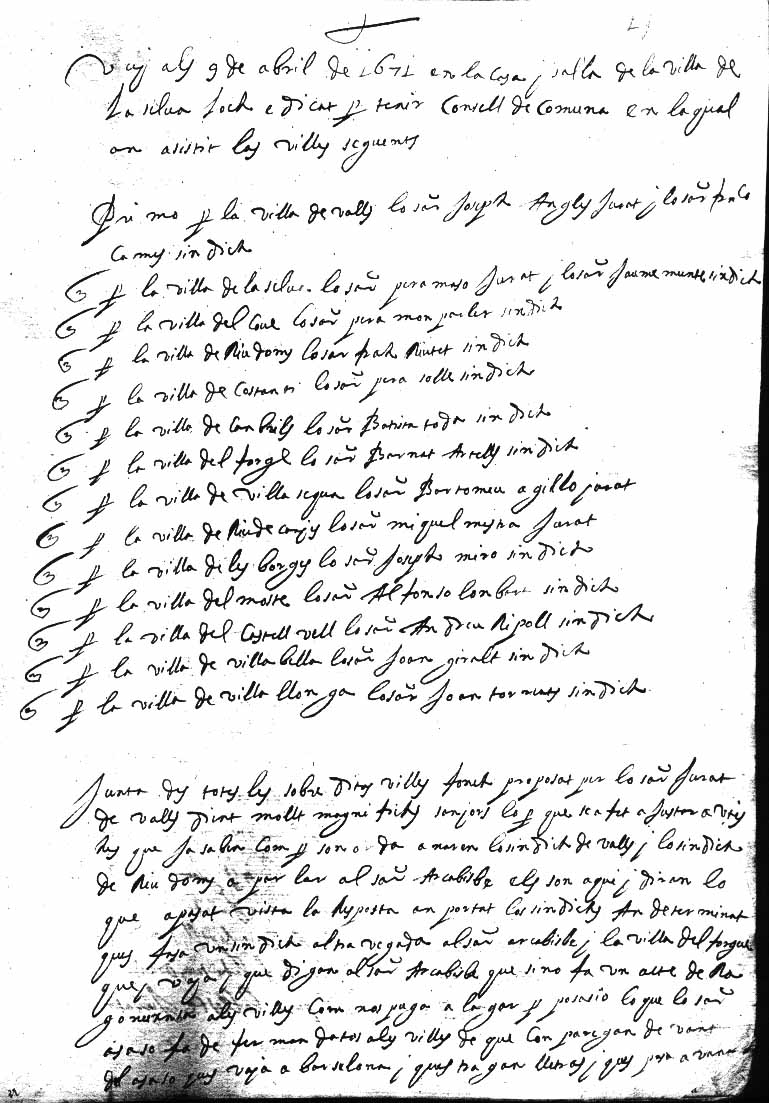 Vuy als 9 de abril de 1671 en la Casa j salla de la villa de
la selva loch e dicat per tenir Consell de Comuna en la qual
an asistit las villes seguents
Primo per la villa de valls lo sãr Joseph Angles Jurat j lo sãr franco
Camys sindich
per la villa de la selva lo sãr pera maso Jurat j lo sãr Jaume munte sindich
per la villa del Cove lo sãr pera mon paler sindich
per la villa de Riudoms lo sar Riutet sindich
per la villa de Costanti lo sãr pera solle sindich
per la villa de Cambrils lo sãr Batista toda sindich
per la villa del forge lo sãr Barnat Artells sindich
per la villa de villa sequa lo sãr Bartomeu agillo jurat
per la villa de Riudecanys lo sãr miquel mestra Jurat
per la villa de les borges lo sãr Joseph miro sindich
per la villa del moste lo sãr Alfonso lonbart sindich
per la villa del Castell vell lo sãr Andreu Ripoll sindich
per la villa de villa bella lo sãr Joan giralt sindich
per la villa de villa llonga lo sãr Joan tornets sindich
Junta des totes les sobre dites villes fonch proposat per lo sãr Jurat
de valls dient mollt magnifichs senjors lo per que se a fet a Justar a vres
que Ja saben Com per son o da anaren lo sindich de valls j lo sindich
de Riudoms a parlar al sãr Arcabisbe els son aqui j diran lo
que a pasat vista la Resposta an portat los sindichs An determinat
ques fasa un sindich altra vegada al sãr arcabisbe j la villa del forge
quej vaja j que digan al sãr Arcabisbe que si no fa un acte de Ra
a les villes Com nos paga a la gar per posasio lo que lo sãr
asaso fa de fer mandatos a les villes de que Con paregan de vant
del asaso ques vaja a barselona j ques tragan lletras j ques